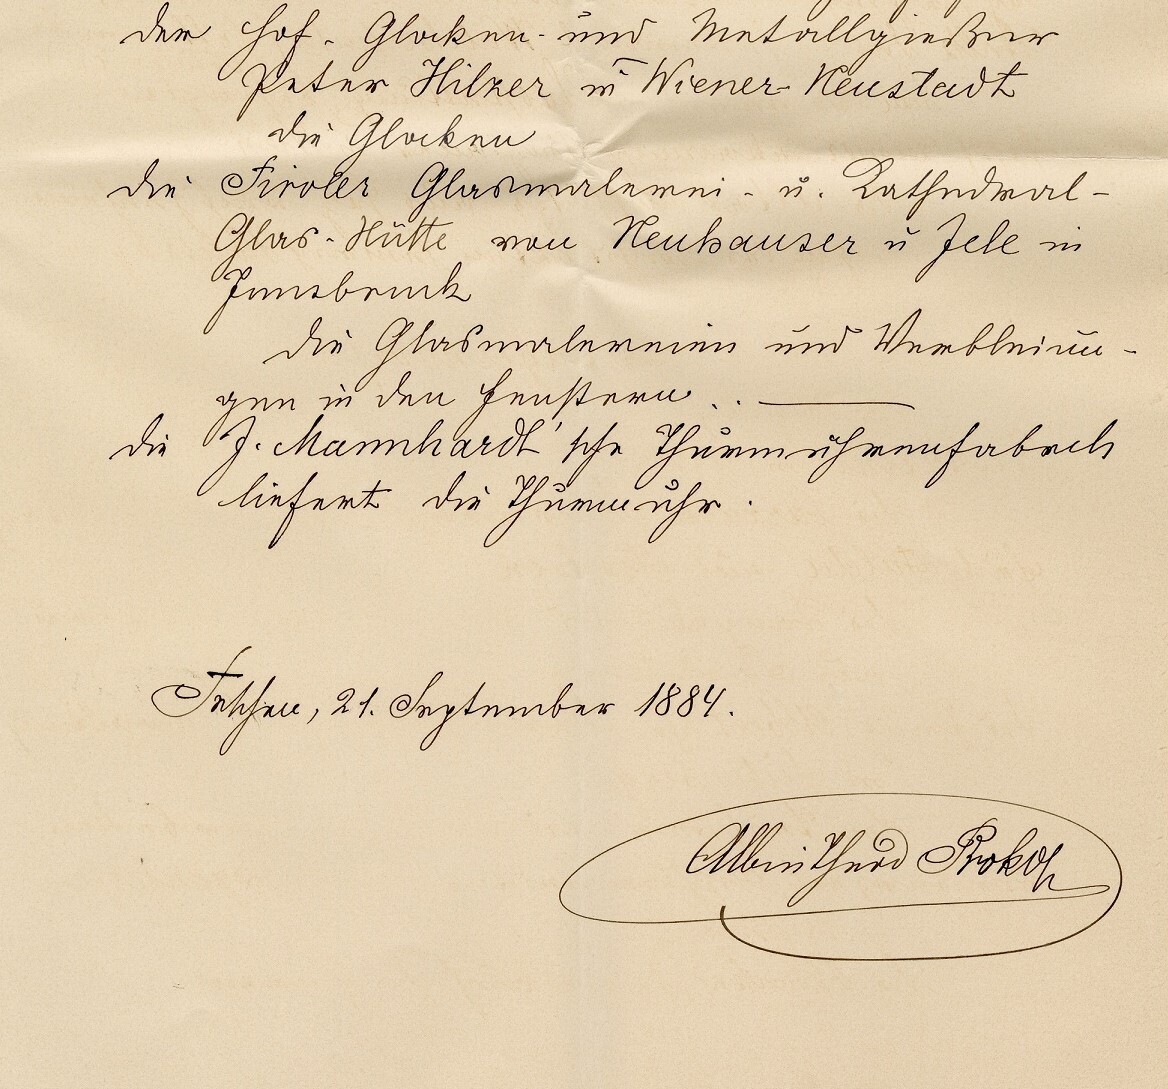 der Hof-Glocken- und Metallgießer
Peter Hilzer in Wiener-Neustadt
die Glocken
die Tiroler Glasmalerei- u. Kathedral-
Glas-Hütte von Neuhauser u Jele in
Innsbruck
die Glasmalereien und Verbleiun-
gen in den Fenstern..
die J. Mannhardt'sche Thurmuhrenfabrik
liefert die Thurmuhr.
Tetschen, 21. September 1884.
Albin Theod Prokop